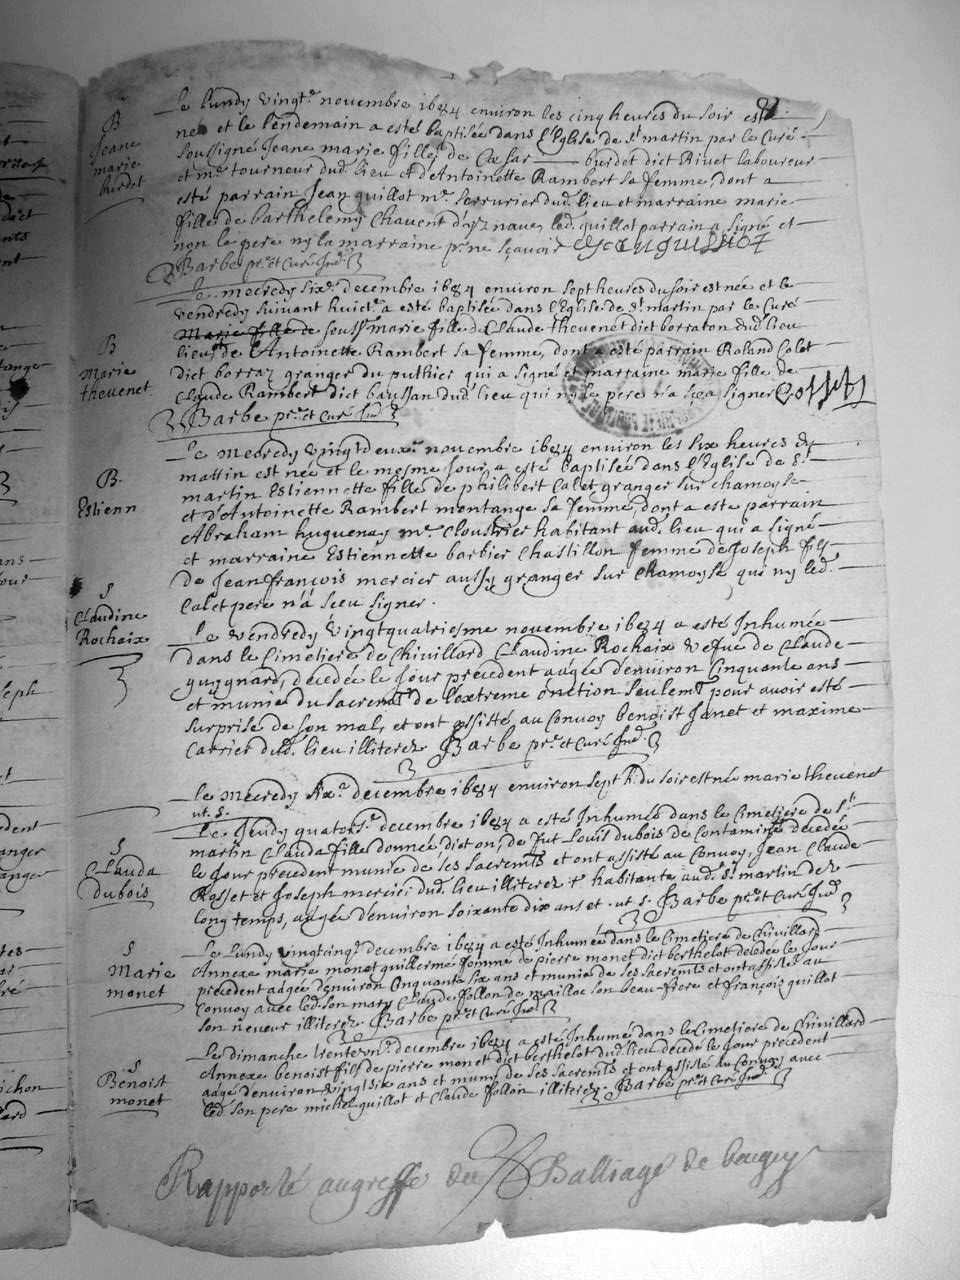 B
Jeane
marie
burdet
Le lundy vingt.e novembre 1684 environ les cinq heures du soir est
née et le lendemain a esté baptisée dans l'Eglise de S.t martin par le Curé
soussigné Jeane marie fille de Cæsar burdet dict Rivet laboureur
et m.e tourneur dud. lieu et d'Antoinette Rambert sa femme, dont a
esté parrain Jean guillot m.e serrurier dud. lieu et marraine marie
fille de barthelemy Chavent d' led. guillot parrain a signé et
non le pere ny la marraine p.r ne sçavoir Jean guillot
Barbe p.re et Curé Jud.
B
Marie
thevenet
Le mecredy six.e decembre 1684 environ sept heures du soir est née et le
vendredy suivant huict.e a esté baptisée dans l'Eglise de S.t martin par le Curé
Marie fille de souss.é marie fille de Claude thevenet dict borraton dud. lieu
lieu, et de Antoinette Rambert sa femme, dont a esté parrain Roland Colet
dict borraz granger du puthier qui a signé et marraine marie fille de
Claude Rambert dict baussan dud. lieu qui ny le pere n'a sceu signer
Barbe p.re et Curé Jud.
B.
Estienn
Le mecredy vingtdeux.e novembre 1684 environ les six heures du
mattin est née et le mesme jour a esté baptisée dans l'Eglise de S.t
martin Estiennette fille de philibert Calet granger sur chamoyse
et d'Antoinette Rambert montange sa femme, dont a esté parrain
Abraham huguenay m.e Cloustrier habitant aud. lieu qui a signé
et marraine Estiennette barbier Chastillon femme de Joseph fils
de Jean françois mercier aussy granger sur Chamoyse qui ny led.
Calet pere n'a sceu signer.
S
Claudine
Rochaix
Le vendredy vingtquatriesme novembre 1684 a esté Inhumée
dans le Cimetiere de Chivillard Claudine Rochaix vefve de Claude
guygnard, decedée le jour precedent aagée d'environ Cinquante ans
et munie du sacrem.t de l'extreme onction seulem.t pour avoir esté
surprise de son mal, et ont assisté au Convoy benoist Janet et maxime
Carrier dud. lieu illiterez Barbe p.re et Curé Jud.
Le mecredy six.e decembre 1684 environ sept h. du soir est née marie thevenet
ut. S.
S
Clauda
dubois
Le Jeudy quatorz.e decembre 1684 a esté Inhumée dans le Cimetiere de S.t
martin Clauda fille donnée dict on, de fut Louis dubois de Contamine decedée
le jour precedent munie de ses sacremts et ont assisté au Convoy, Jean Claude
Rosset et Joseph mercié dud. lieu illiterez & habitante aud. S.t martin dez
long temps, aagée d'environ soixante dix ans et ut S. Barbe p.re et Curé Jud.
S
Marie
monet
Le Lundy vingtcinq.e decembre 1684 a esté Inhumée dans le Cimetiere de Chivillard
Annexe marie monet guillermé femme de pierre monet dict berthelot decedée le jour
precedent aagée d'environ Cinquante six ans et munie de ses sacremts et ont assistés au
Convoy avec led. son mary Claude follon de mailloc son beau-frere et françois guillot
son neveur illiterez Barbe p.re et Curé Jud.
S
Benoist
monet
Le dimanche trente un.e decembre 1684 a esté Inhumé dans le Cimetiere de Chivillard
Annexe benoist fils de pierre monet dict berthelot dud. lieu decedé le jour precedent
aagé d'environ vingt six ans et muny de ses sacremts et ont assisté au Convoy avec
led. son pere michel guillot et Claude follon illiterez. Barbe p.re et Curé Jud.
Rapporté au greffe du Balliage de beugey